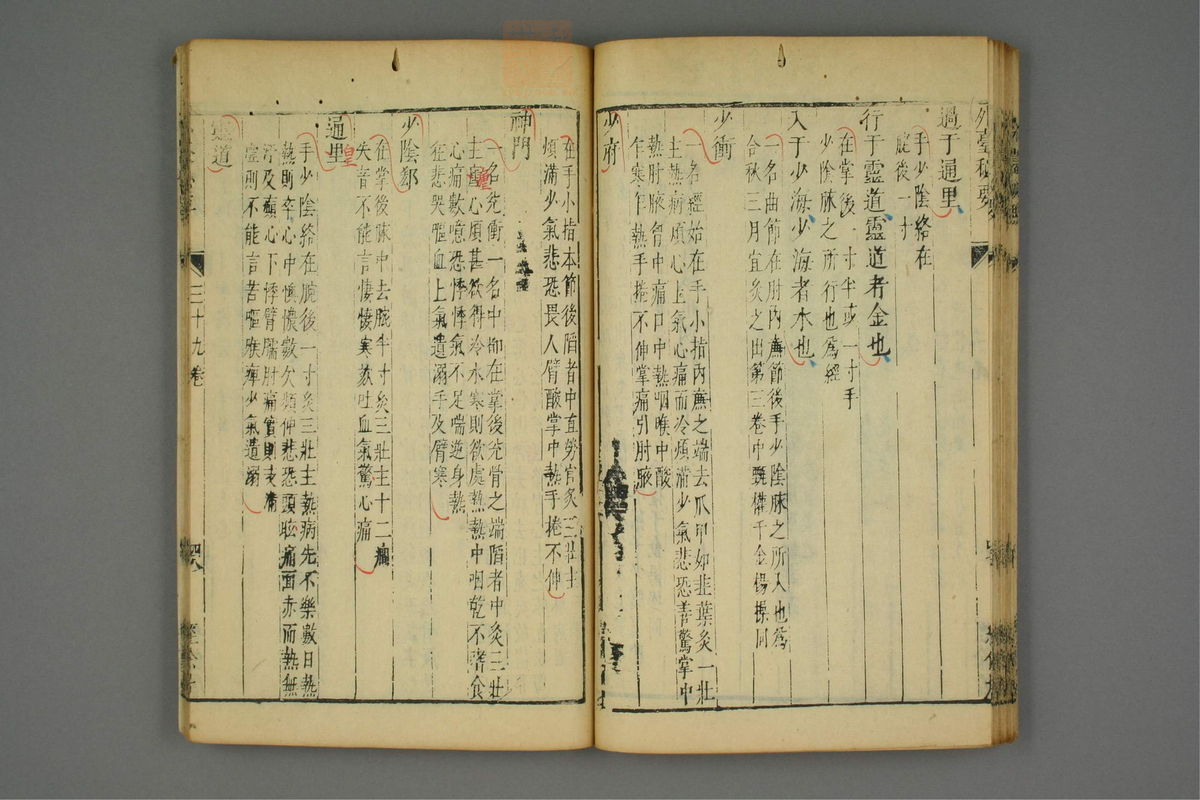 外臺秘要
過于通里
手少陰絡在
腕後一寸
行于靈道靈道者金也
在掌後一寸半或一寸手
少陰脉之所行也爲經
入于少海少海者水也
一名曲節在肘內廉節後手少陰脉之所入也爲
合秋三月宜灸之出第三卷中甄權千金楊操同
少衝
一名經始在手小指內廉之端去爪甲如韭葉灸一壯
主熱病煩心上氣心痛而冷煩滿少氣悲恐善驚掌中
熱肘腋胷中痛口中熱咽喉中酸
乍寒乍熱手捲不伸掌痛引肘腋
少府
在手小指本節後陷者中直勞宮灸三壯主
煩滿少氣悲恐畏人臂酸掌中熱手捲不伸
神門
一名兊衝一名中都在掌後兊骨之端陷者中灸三壯
主瘧心煩甚欲得冷水寒則欲處熱熱中咽乾不嗜食
心痛數噫恐悸悸氣不足喘逆身熱
狂悲哭嘔血上氣遺溺手及臂寒
少陰郄
在掌後脉中去腕半寸灸三壯主十二癎
失音不能言悽悽寒欬吐血氣驚心痛
通里
手少陰絡在腕後一寸灸三壯主熱病先不樂數日熱
熱則卒心中懊憹數欠頻伸悲恐頭眩痛面赤而熱無
汗及癲心下悸臂臑肘痛實則支滿
虛則不能言苦嘔喉痹少氣遺溺
靈道
三十九卷